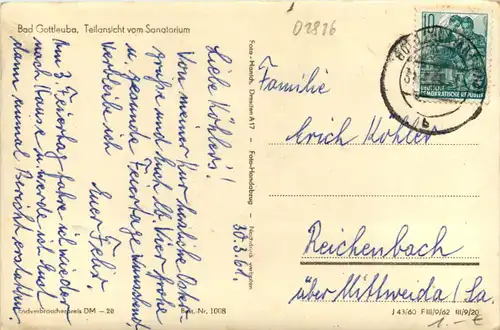 Bad Gottleuba, Teilansicht vom Sanatorium
02826
30.3.61.
Liebe Köhlers!
Von meiner Kur herzliche Oster-
grüße und Euch lb. vier frohe
u. gesunde Feiertage wünschend
verbleib ich
Euer Felix.
Am 3. Feiertag fahre ich wieder
nach Hause u. werde ich Euch
dann einmal Bericht erstatten.
Endverbraucherpreis DM –.20
Best.-Nr. 1008
Foto-Handabzug
Nachdruck verboten
10
DEUTSCHE
DEMOKRATISCHE REPUBLIK
Familie
Erich Köhler
Reichenbach
über Mittweida (Sa.
J 43/60 F III/9/62 III/9/20
1.-